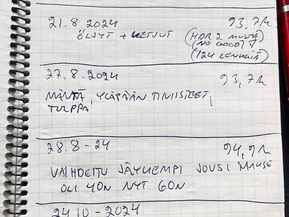 21.8.2024 93,7h
ÖLJYT + KETJUT (MOR 2
(NO GOOD)
(124 LENKKIÄ)
27.8.2024 93,7h
MÄNTÄ, YLÄPÄÄN TIIVISTEET,
TULPPA
28.8-24 94,9h
VAIHDETTU JÄYKEMPI JOUSI
OLI 40N NYT 60N
24.10-2024